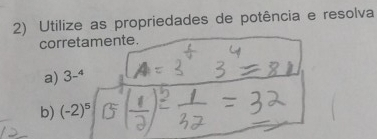 2) Utilize as propriedades de potência e resolva
corretamente.
a) 3-⁴ A = 3 3⁴ = 81
b) (-2)⁵ (1/2) 1/32 = 32